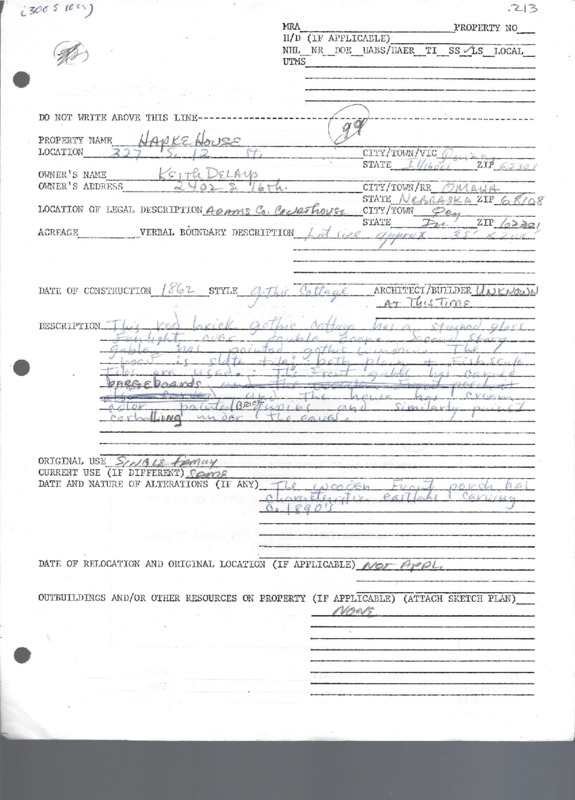 (300 S 12th) .213
MRA PROPERTY NO
H/D (IF APPLICABLE)
NHL NR DOE HABS/HAER TI SS ✓LS LOCAL
UTMS
DO NOT WRITE ABOVE THIS LINE
99
PROPERTY NAME HAPKE HOUSE
LOCATION 327 S. 12 CITY/TOWN/VIC Quincy
STATE ZIP 62301
OWNER'S NAME Keith DeLayo
OWNER'S ADDRESS 2402 S 16th. CITY/TOWN/RR OMAHA
STATE NEBRASKA ZIP 68108
LOCATION OF LEGAL DESCRIPTION ADAMS CO. COURTHOUSE CITY/TOWN
STATE ZIP 62301
ACREAGE VERBAL BOUNDARY DESCRIPTION Lot size approx 35' x
DATE OF CONSTRUCTION 1862 STYLE Gothic Cottage ARCHITECT/BUILDER UNKNOWN
AT THIS TIME
DESCRIPTION This red brick gothic cottage has a stained glass
Fanlight over double doors. Second Story
gable has pointed gothic windows. The
roof is slate tile; both plain & Fishscale
tiles are used. The Front gable has carved
BARGEBOARDS and the wooden Front porch is
and the house has cream
color painted BRICK quoins and similarly painted
corbelling under the eaves.
ORIGINAL USE SINGLE FAMILY
CURRENT USE (IF DIFFERENT) SAME
DATE AND NATURE OF ALTERATIONS (IF ANY) The wooden Front porch has
characteristic eastlake carving
1890's
DATE OF RELOCATION AND ORIGINAL LOCATION (IF APPLICABLE) NOT APPL.
OUTBUILDINGS AND/OR OTHER RESOURCES ON PROPERTY (IF APPLICABLE) (ATTACH SKETCH PLAN)
NONE